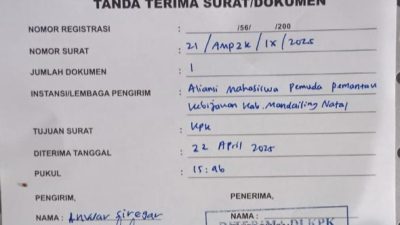 TANDA TERIMA SURAT/DOKUMEN
NOMOR REGISTRASI : /56/ /200
NOMOR SURAT : 21/AMP2K/IX/2025
JUMLAH DOKUMEN : 1
INSTANSI/LEMBAGA PENGIRIM : Aliansi Mahasiswa Pemuda pemantau
Kebijakan Kab. Mandailing Natal
TUJUAN SURAT : KPK
DITERIMA TANGGAL : 22 April 2025
PUKUL : 15:46
PENGIRIM, PENERIMA,
NAMA : Anwar Siregar NAMA :
DITERIMA DI KPK